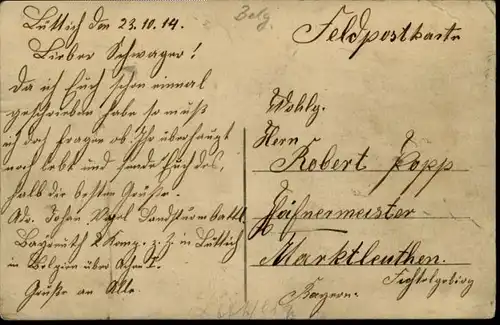 Lüttich den 23.10.14.
Lieber Schwager!
Da ich Euch schon einmal
geschrieben habe so muß
ich doch fragen ob Ihr überhaupt
noch lebt und sende Euch des-
halb die besten Grüße.
Adr. Johan Landsturmbattl.
Bayreuth 2 Komp. z. Z. in Lüttich
in Belgien über
Grüße an Alle.
Belg.
Feldpostkarte
Wohlg.
Herrn
Robert Popp
Hafnermeister
Marktleuthen.
Fichtelgebirg
Bayern.